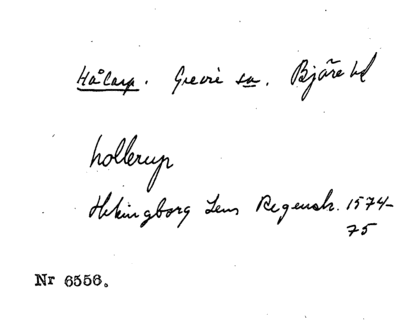 Hålarp. Grevie sn. Bjäre hd
hollerup
Helsingborg Lens Regensk. 1574-
75
Nr 6556.